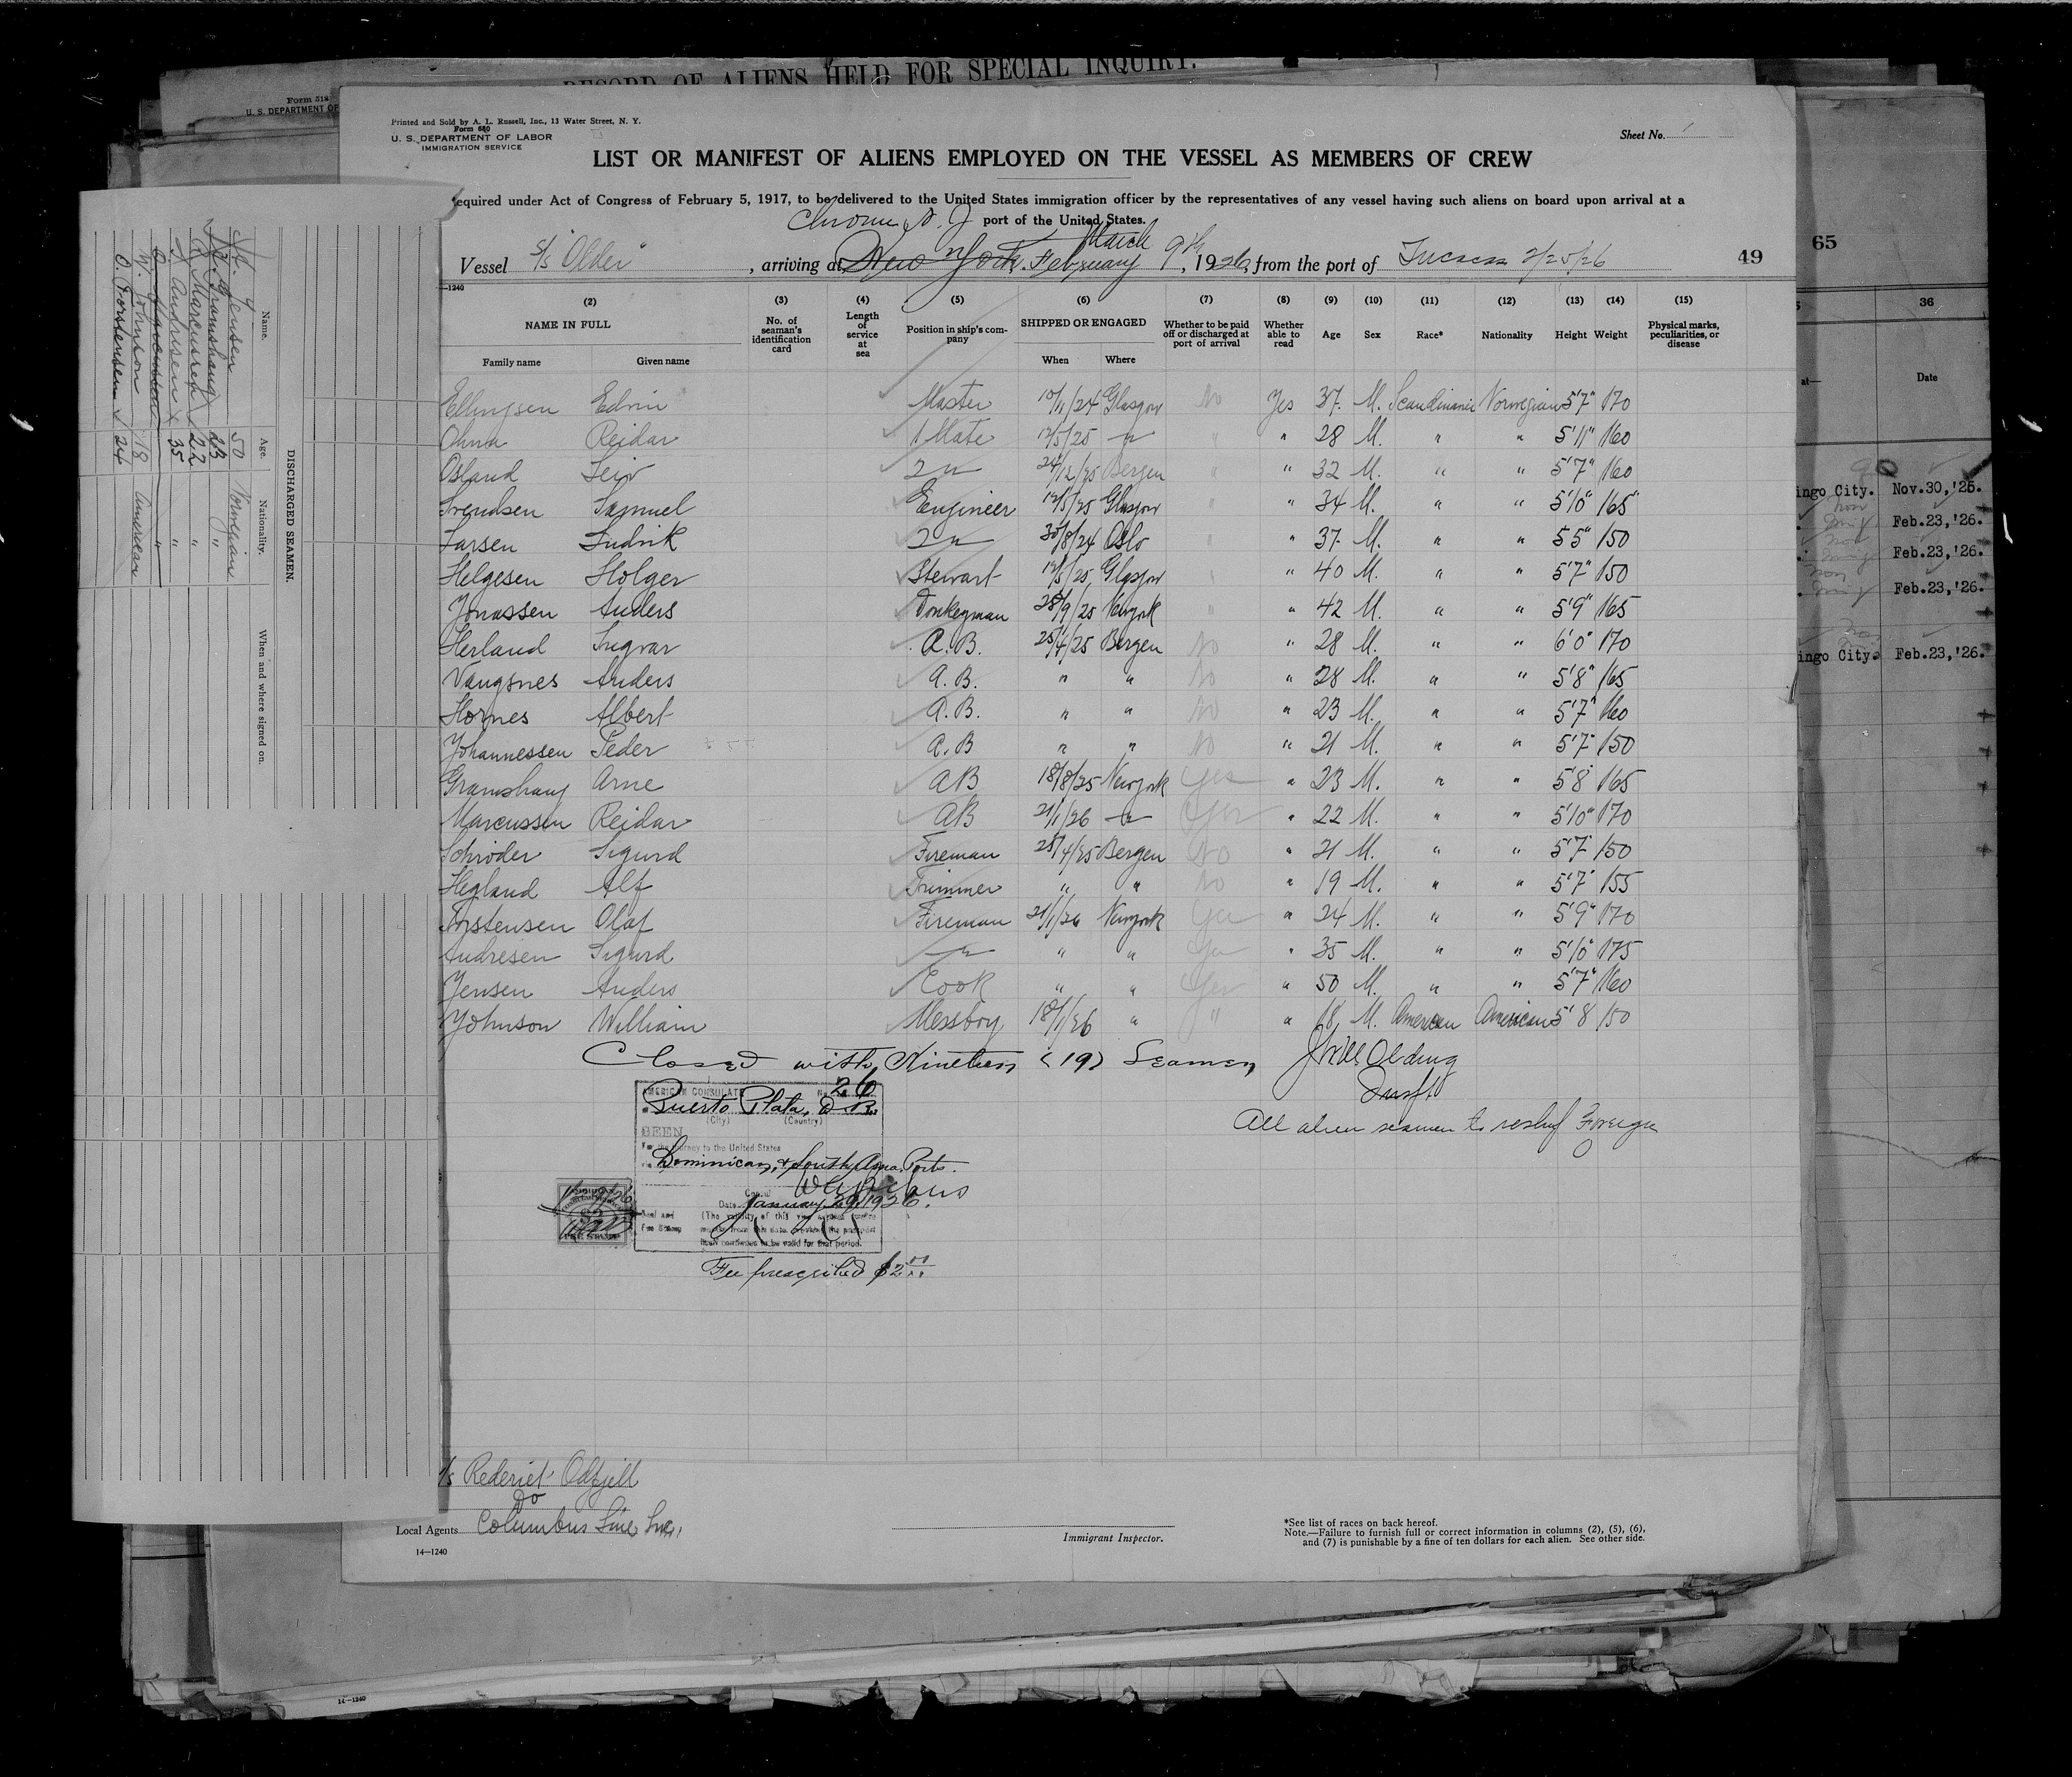 RECORD OF ALIENS HELD FOR SPECIAL INQUIRY.
Form 518
U. S. DEPARTMENT OF
Printed and Sold by A. L. Russell, Inc., 13 Water Street, N. Y.
Form 680
U. S. DEPARTMENT OF LABOR
IMMIGRATION SERVICE
Sheet No. 1
LIST OR MANIFEST OF ALIENS EMPLOYED ON THE VESSEL AS MEMBERS OF CREW
equired under Act of Congress of February 5, 1917, to be delivered to the United States immigration officer by the representatives of any vessel having such aliens on board upon arrival at a
port of the United States.
Chrome N. J.
March
Vessel S/S "Older" , arriving at New York. February 9th, 1926, from the port of 2/25/26
49
1240
(2) (3) (4) (5) (6) (7) (8) (9) (10) (11) (12) (13) (14) (15)
NAME IN FULL
Family name Given name
No. of seaman's identification card
Length of service at sea
Position in ship's company
SHIPPED OR ENGAGED
When Where
Whether to be paid off or discharged at port of arrival
Whether able to read
Age Sex Race* Nationality Height Weight
Physical marks, peculiarities, or disease
Ellingsen Edvin Master 10/11/24 Glasgow No Yes 37. M. Scandinavic Norwegian 5'7" 170
Ohna Reidar 1 Mate 12/5/25 -"- " " 28 M. " " 5'11" 160
Osland Leiv 2 -"- 24/12/25 Bergen " " 32 M. " " 5'7" 160
Svendsen Samuel Engineer 12/5/25 Glasgow " " 34 M. " " 5'10" 165
Larsen Ludvik 2 -"- 30/8/24 Oslo " " 37. M. " " 5'5" 150
Helgesen Holger Stewart 12/5/25 Glasgow " " 40 M. " " 5'7" 150
Jonassen Anders Donkeyman 28/9/25 Newyork " " 42 M. " " 5'9" 165
Herland Ingvar A.B. 25/4/25 Bergen No " 28 M. " " 6'0" 170
Vangsnes Anders A.B. " " No " 28 M. " " 5'8" 165
Hornes Albert A.B. " " No " 23 M. " " 5'7" 160
Johannessen Peder A.B " " No " 21 M. " " 5'7" 150
Gramshaug Arne AB 18/8/25 Newyork Yes " 23 M. " " 5'8" 165
Marcussen Reidar AB 21/1/26 -"- Yes " 22 M. " " 5'10" 170
Schröder Sigurd Fireman 25/4/25 Bergen No " 21 M. " " 5'7" 150
Hegland Alf Trimmer " " No " 19 M. " " 5'7" 155
Torstensen Olaf Fireman 21/1/26 Newyork Yes " 24 M. " " 5'9" 170
Andresen Sigurd -"- " " Yes " 35 M. " " 5'10" 175
Jensen Anders Cook " " Yes " 50 M. " " 5'7" 160
Johnson William Messboy 18/1/26 " " " 18 M. American American 5'8 150
Closed with Nineteen (19) Seamen
All alien seamen to reship Foreign
AMERICAN CONSULATE
No. 26
Puerto Plata, D.R.
(City) (Country)
SEEN
For the journey to the United States
Dominican, & South Amn. Ports.
Consul
Date January 29, 1926.
(The validity of this visa
Seal and
Fee Stamp
Fee prescribed $2.00
Rederiet Odfjell
Do
Local Agents Columbus Line Inc.
Immigrant Inspector.
14—1240
*See list of races on back hereof.
Note.—Failure to furnish full or correct information in columns (2), (5), (6),
and (7) is punishable by a fine of ten dollars for each alien. See other side.
DISCHARGED SEAMEN.
Name. Age. Nationality. When and where signed on.
A. Jensen 50 Norwegian
A. Gramshaug 23 "
R. Marcussen 22 "
S. Andresen 35 "
W. Johnson 18 American
O. Torstensen 24
65
36
at— Date
ingo City. Nov.30,'25.
Feb.23,'26.
Feb.23,'26.
Feb.23,'26.
ingo City. Feb.23,'26.
14—1240